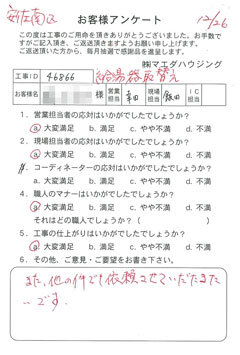 安佐南区
お客様アンケート
12/26
この度は工事のご用命を頂きありがとうございました。お手数で
すがご記入頂き、ご返送頂きますようお願い申し上げます。
ご返送頂いた方から、毎月抽選で感謝品を進呈します。
㈱マエダハウジング
工事ID 46866 給湯器取替え
お客様名 様 営業担当 現場担当 飯田 IC担当
1．営業担当者の応対はいかがでしたでしょうか？
a.大変満足 b.満足 c.やや不満 d.不満
2．現場担当者の応対はいかがでしたでしょうか？
a.大変満足 b.満足 c.やや不満 d.不満
3．コーディネーターの応対はいかがでしたでしょうか？
a.大変満足 b.満足 c.やや不満 d.不満
4．職人のマナーはいかがでしたでしょうか？
a.大変満足 b.満足 c.やや不満 d.不満
それはどの職人でしょうか？（
5．工事の仕上がりはいかがでしたでしょうか？
a.大変満足 b.満足 c.やや不満 d.不満
6．その他、ご意見・ご要望をお書き下さい。
また、他の件でも依頼させていただきた
いです。